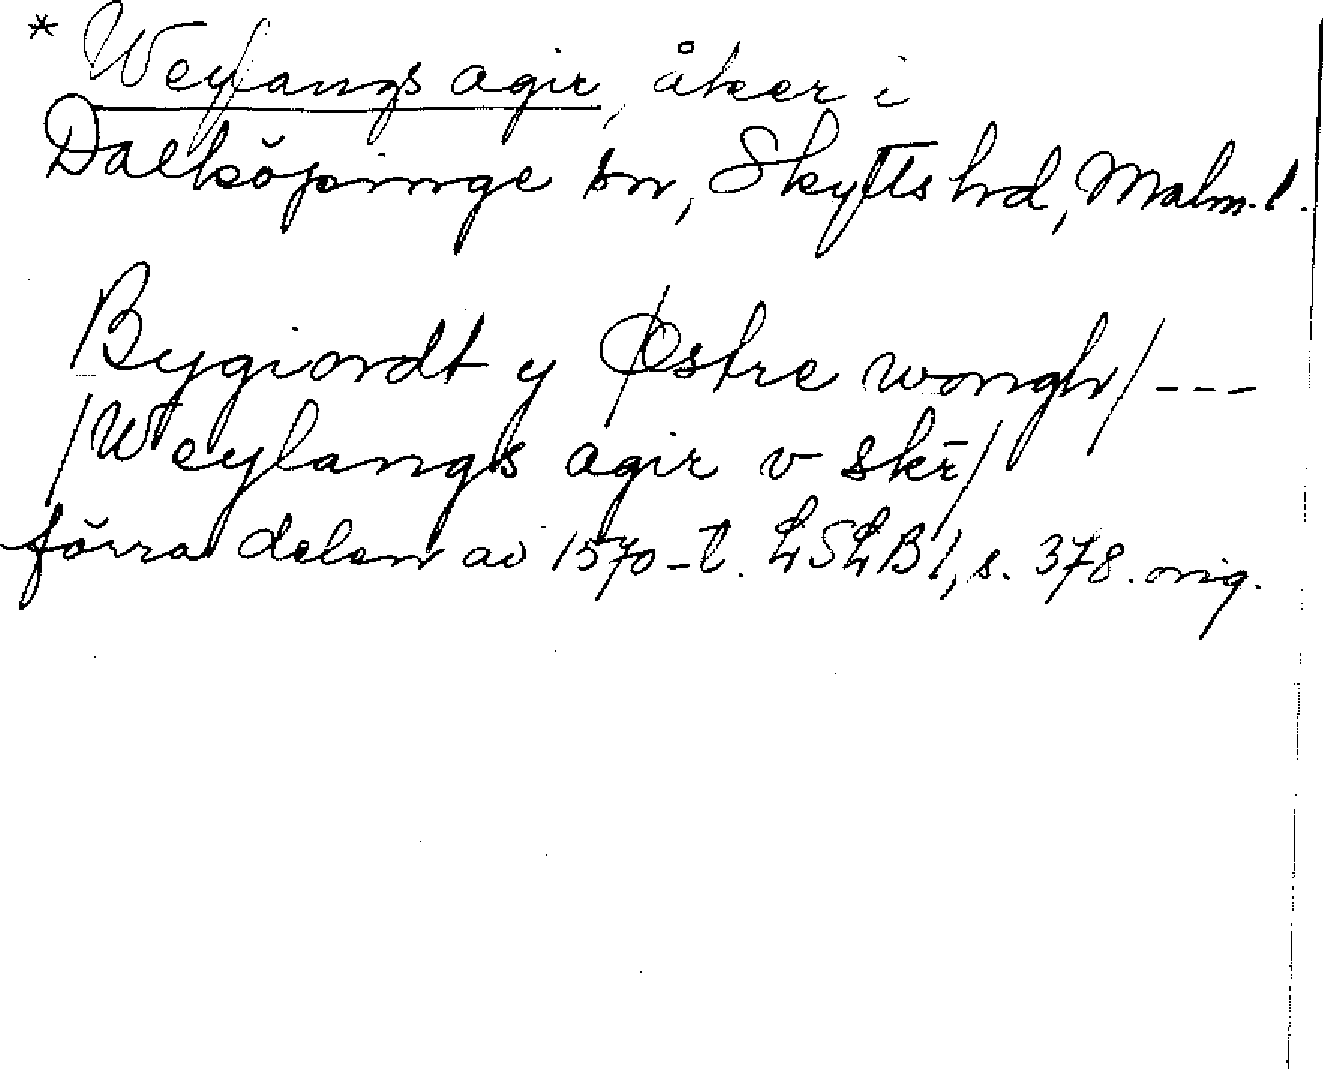 * Weylangs agir, åker i
Dalköpinge sn, Skytts hd, Malm. l.
Bygiordt y Østre wongh/ ---
/Weylangs agir v skr̄/
förra delen av 1570-t. LSLB 1, s. 378. orig.